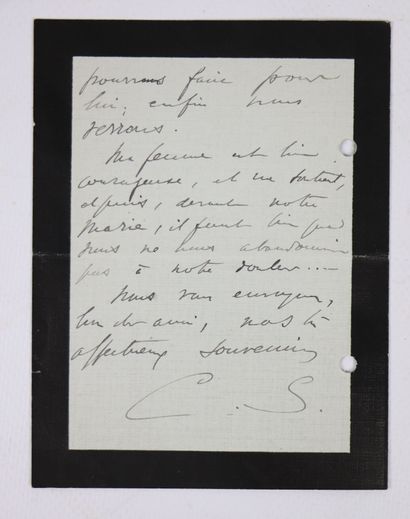 pourrons faire pour
lui; enfin nous
verrons.
Ma femme est bien
courageuse, et me soutient,
et puis, devant notre
Marie, il faut bien que
nous ne nous abandonnions
pas à notre douleur...
Nous vous envoyons,
bien cher ami, nos
affectueux souvenirs
C. S.